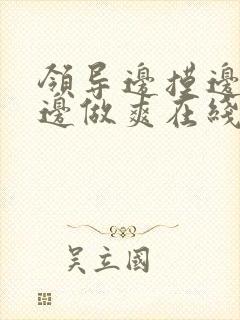 領导邊摸邊
邊做爽在綫
吴立國